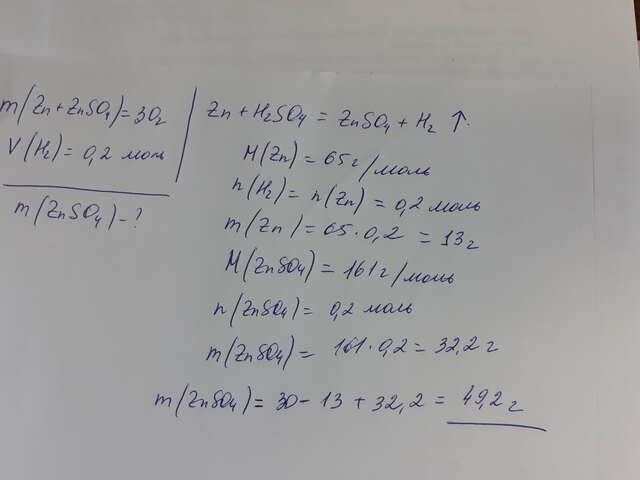 m(Zn+ZnSO4)=30г
V(H2)=0,2 моль
m(ZnSO4)-?
Zn+H2SO4=ZnSO4+H2↑.
M(Zn)=65г/моль
n(H2)=n(Zn)=0,2 моль
m(Zn)=65·0,2=13г
M(ZnSO4)=161г/моль
n(ZnSO4)=0,2 моль
m(ZnSO4)=161·0,2=32,2г
m(ZnSO4)=30-13+32,2=49,2г